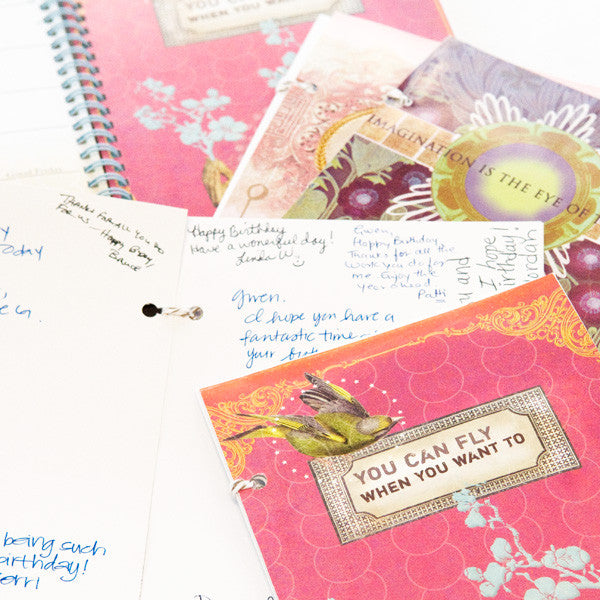 YOU CAN FLY
WHEN YOU WANT TO
IMAGINATION IS THE EYE OF
Thanks for all you do
for us - Happy Bday!!
Bruce
today
Happy Birthday
Have a wonderful day!
Linda W.
Gwen,
Happy Birthday
Thanks for all the
work you do for
me Enjoy the
year ahead
Patti
and
I hope
birthday!
Gwen,
I hope you have a
fantastic time
your
YOU CAN FLY
WHEN YOU WANT TO
being such
birthday!